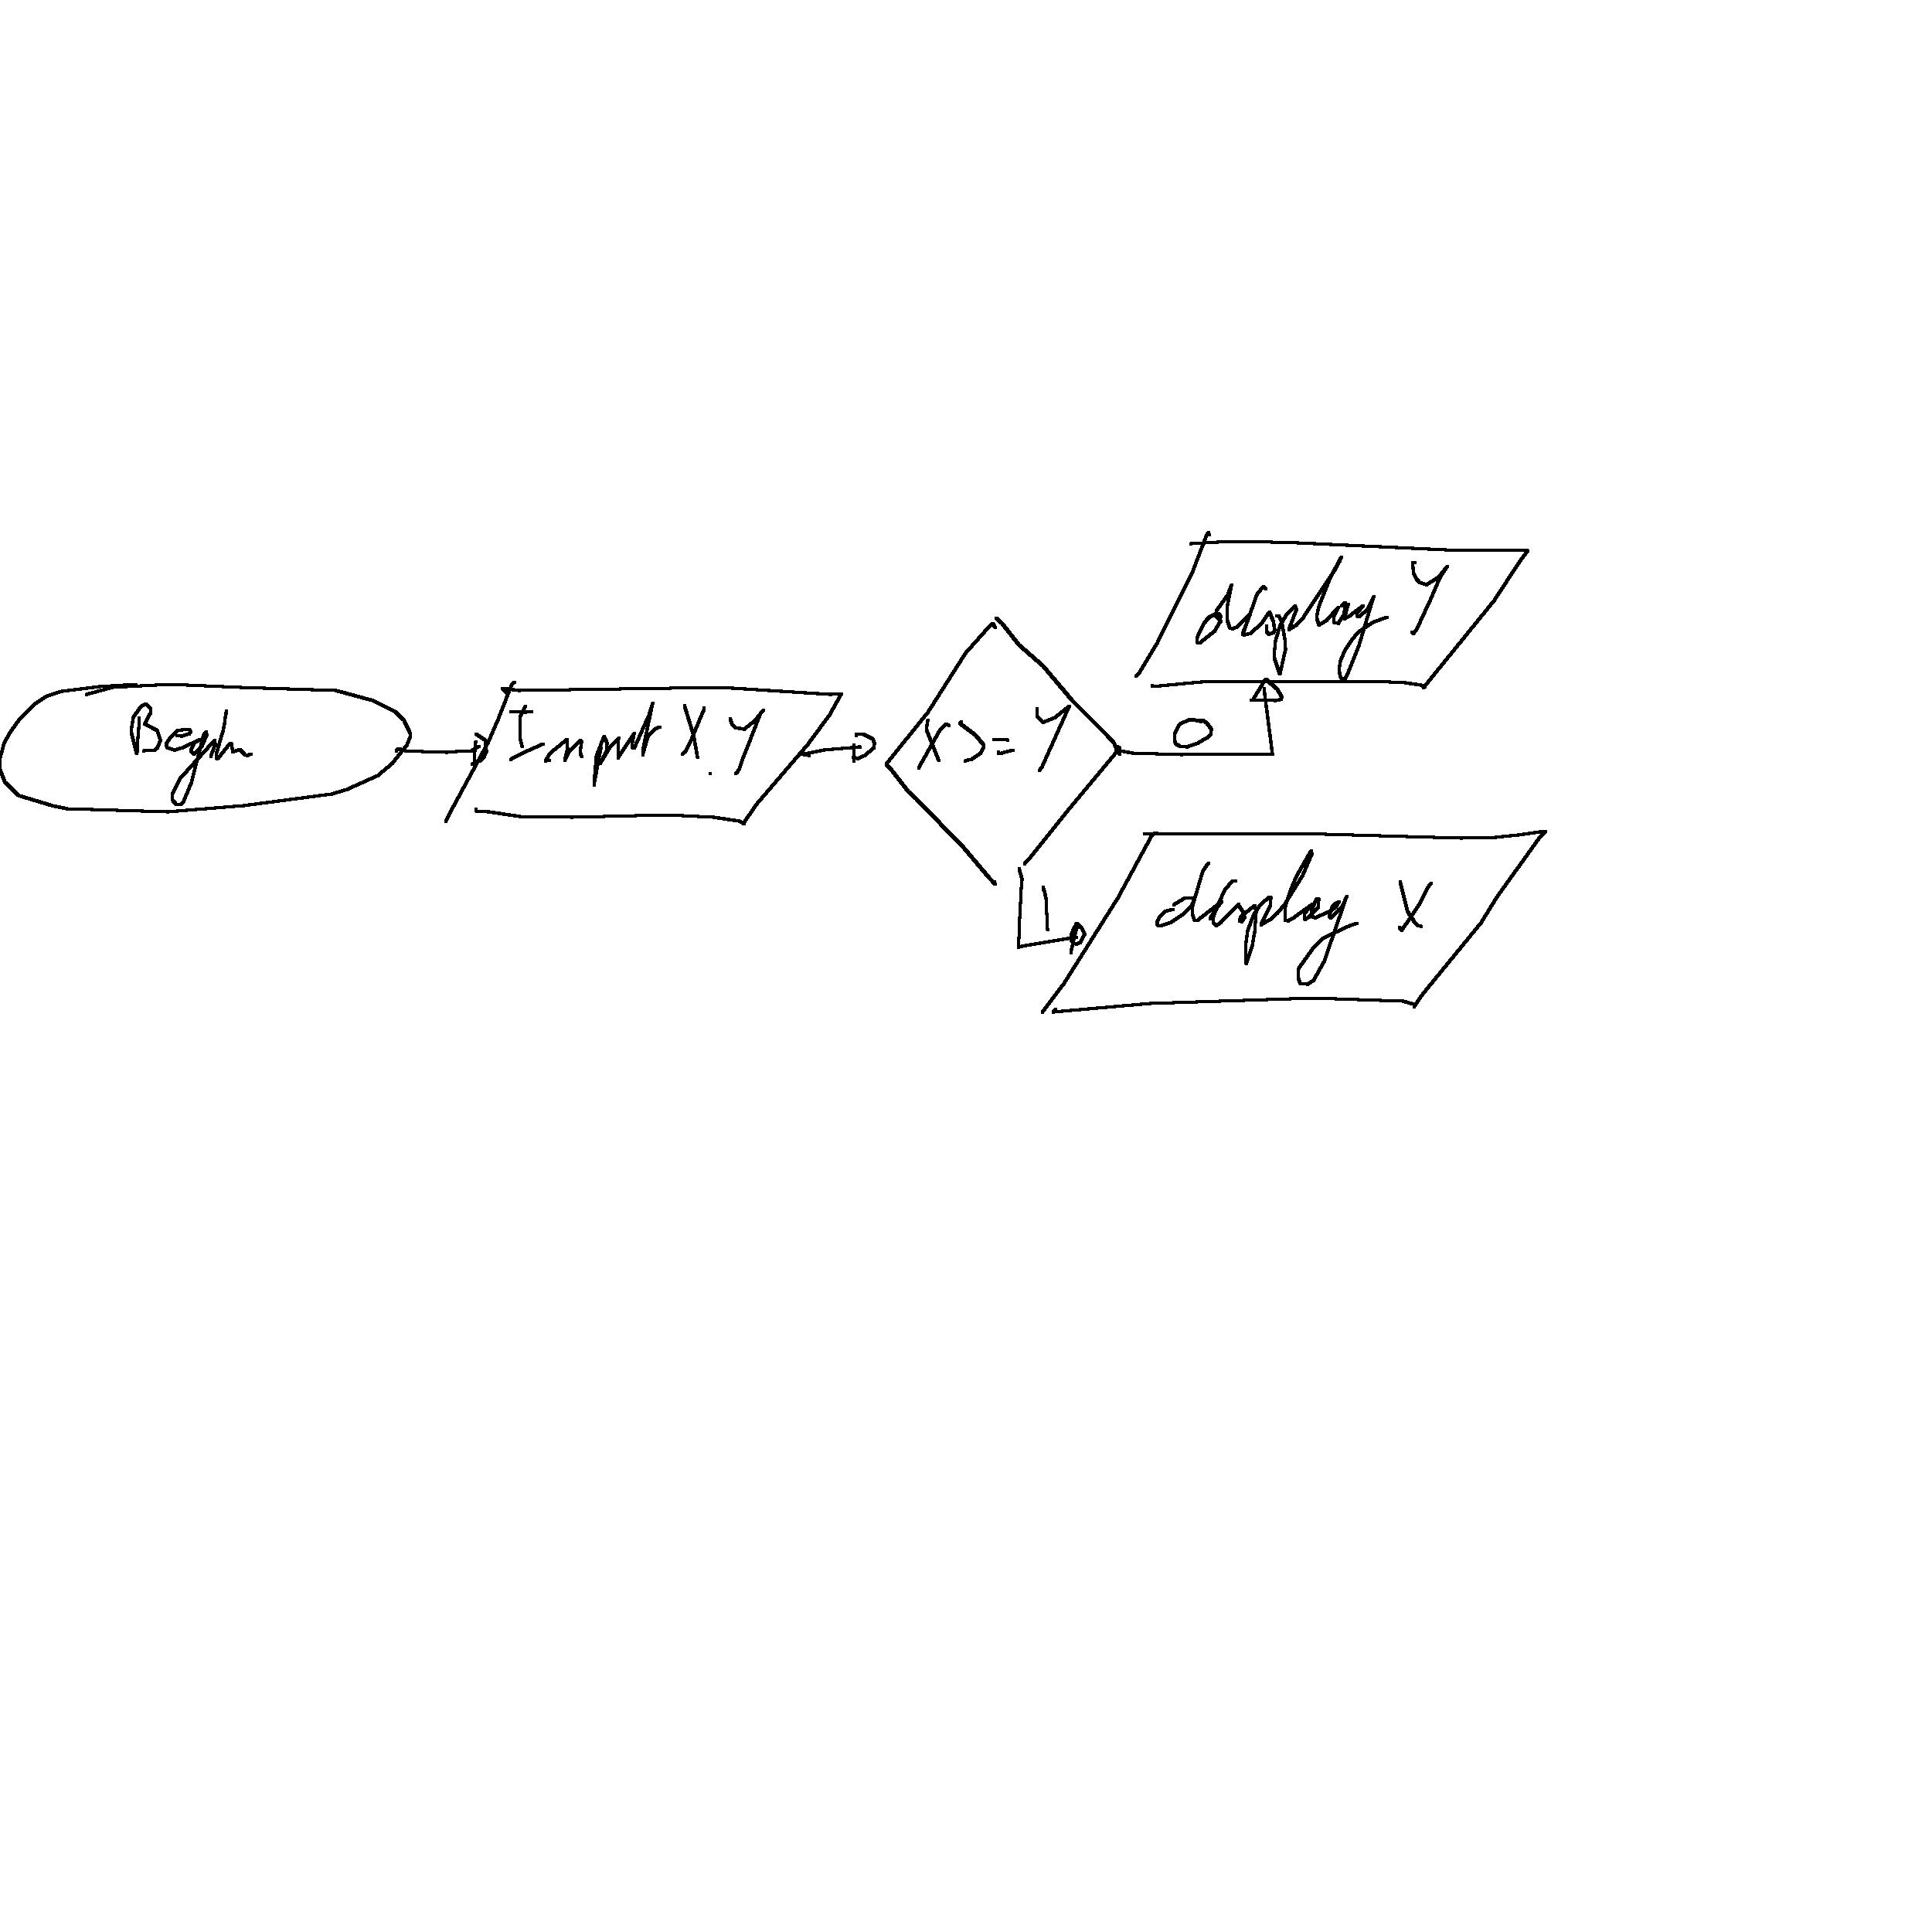 Begin
Input X, Y
X >= Y
0
display Y
1
display X